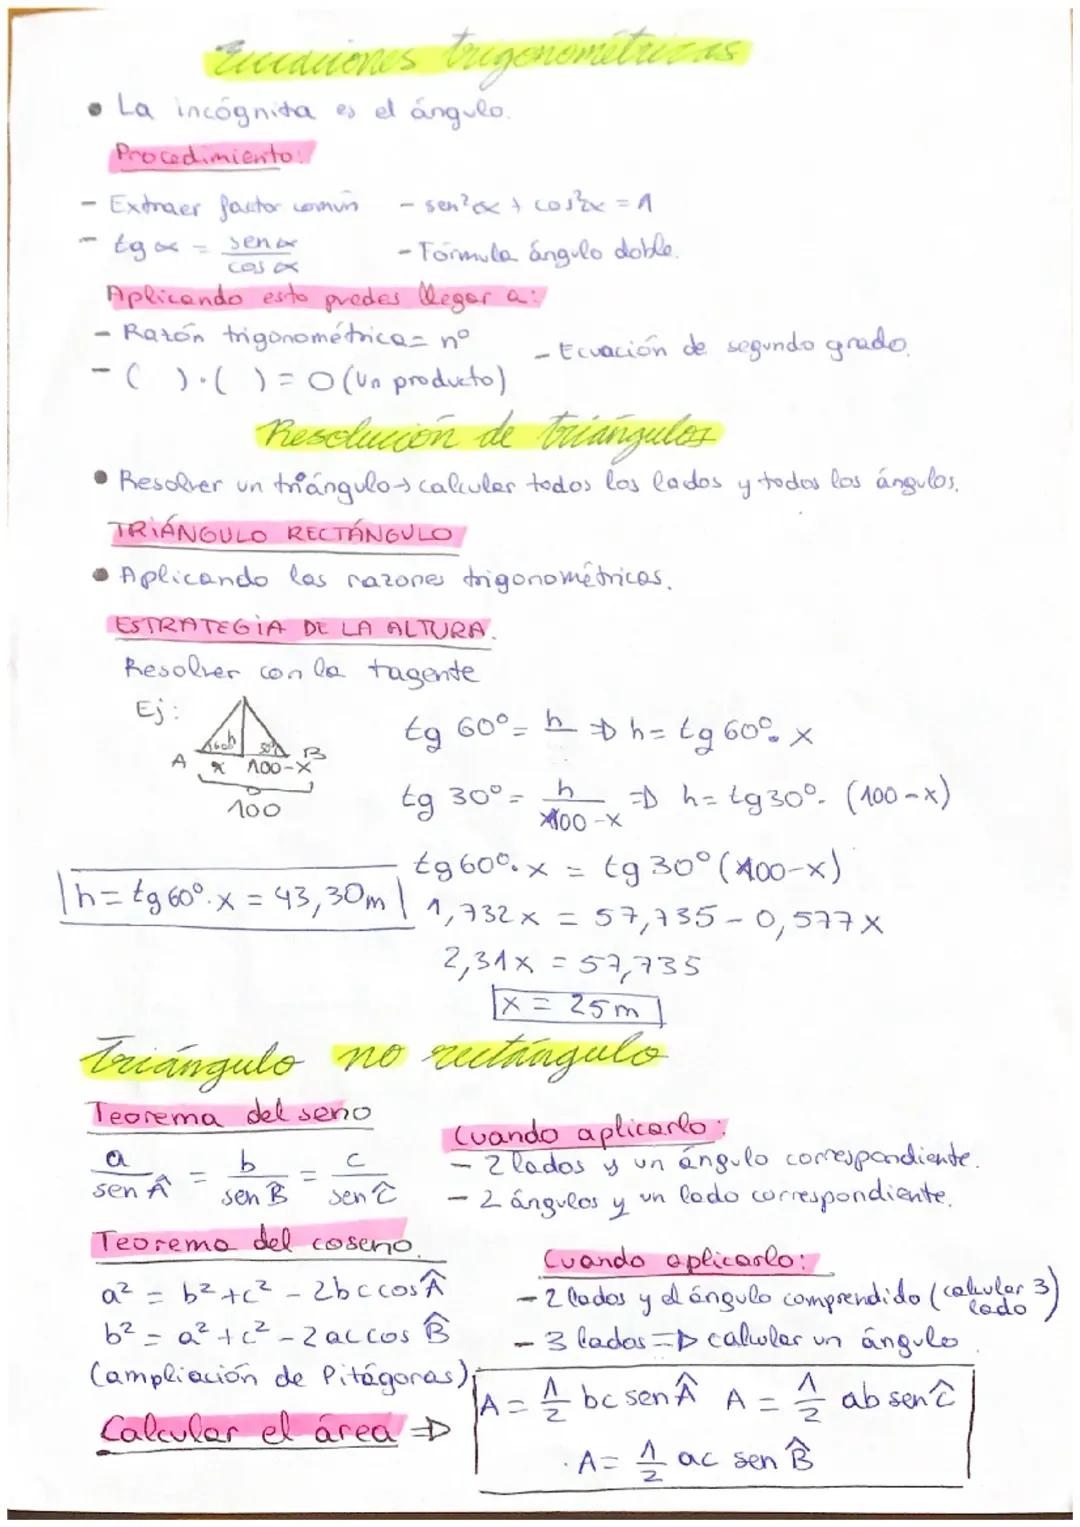 Ecuaciones trigonométricas
• La incógnita es el ángulo.
Procedimiento:
- Extraer factor común - sen²α + cos²α = 1
- tg α = sen α / cos α - Fórmula ángulo doble.
Aplicando esto puedes llegar a:
- Razón trigonométrica = nº
- Ecuación de segundo grado.
- ( ) · ( ) = 0 (Un producto)
Resolución de triángulos
• Resolver un triángulo → calcular todos los lados y todos los ángulos.
TRIÁNGULO RECTÁNGULO
• Aplicando las razones trigonométricas.
ESTRATEGIA DE LA ALTURA.
Resolver con la tagente
Ej:
60º h
A x 100-x B
100
tg 60º = h ⇒ h = tg 60º · x
tg 30º = h / 100-x ⇒ h = tg 30º · (100-x)
tg 60º · x = tg 30º (100-x)
h = tg 60º · x = 43,30m
1,732x = 57,735 - 0,577x
2,31x = 57,735
x = 25m
Triángulo no rectángulo
Teorema del seno
a / sen Â = b / sen B̂ = c / sen Ĉ
Cuando aplicarlo:
- 2 lados y un ángulo correspondiente.
- 2 ángulos y un lado correspondiente.
Teorema del coseno.
a² = b² + c² - 2bc cos Â
b² = a² + c² - 2ac cos B̂
(ampliación de Pitágoras)
Cuando aplicarlo:
- 2 lados y el ángulo comprendido (calcular 3 lado)
- 3 lados ⇒ calcular un ángulo.
Calcular el área ⇒
A = 1/2 bc sen Â A = 1/2 ab sen Ĉ
· A = 1/2 ac sen B̂